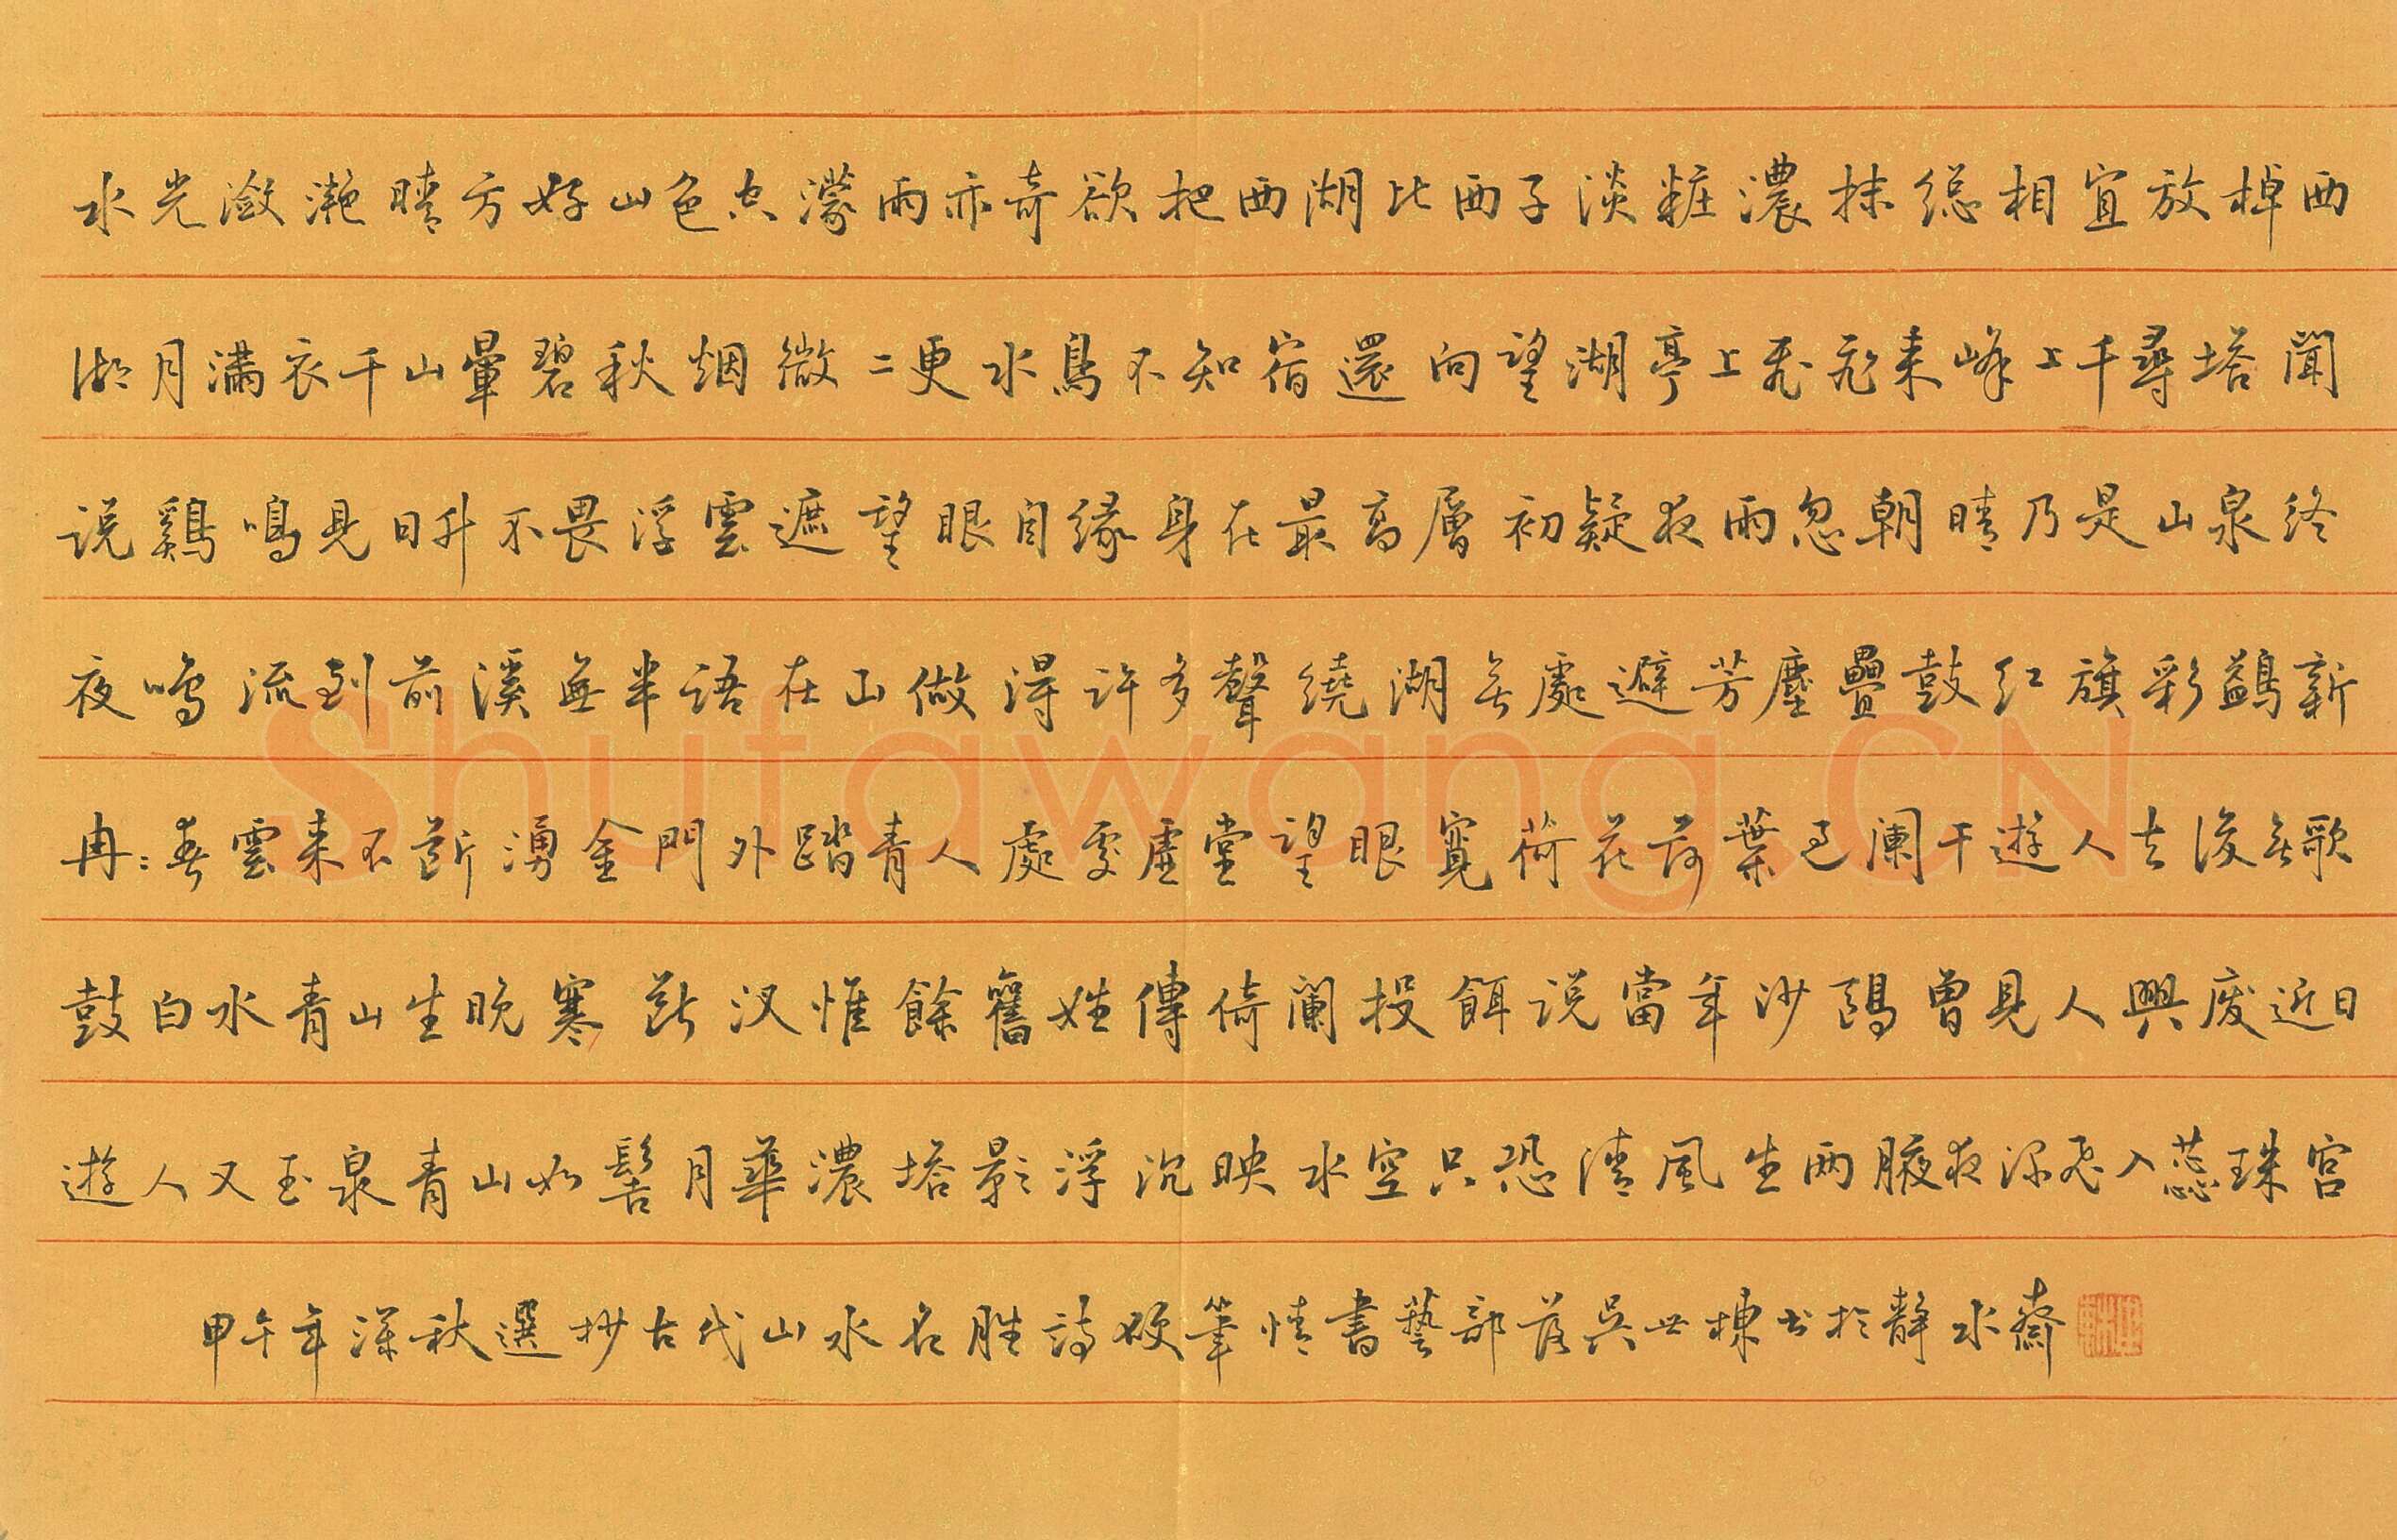 水光瀲灧晴方好山色空濛雨亦奇欲把西湖比西子淡粧濃抹總相宜放棹西
湖月满衣千山暈碧秋烟微二更水鳥不知宿還向望湖亭上飛飛来峰上千尋塔聞
说鷄鳴見日升不畏浮雲遮望眼自緣身在最高層初疑夜雨忽朝晴乃是山泉终
夜鳴流到前溪無半語在山做得許多聲繞湖無處避芳塵疊鼓红旗彩鷁新
冉:春雲来不斷湧金門外踏青人處處虛堂望眼寬荷花荷葉過阑干遊人去後無歌
鼓白水青山生晚寒斷汊惟餘舊姓傳倚闌投餌说當年沙鷗曾見人興废近日
遊人又玉泉青山如髻月華濃塔影浮沉映水空只恐清風生两腋夜深飛入蕊珠宫
甲午年深秋選抄古代山水名胜詩硬筆情書藝部落吳世棟书於静水齋
Shufawang.CN